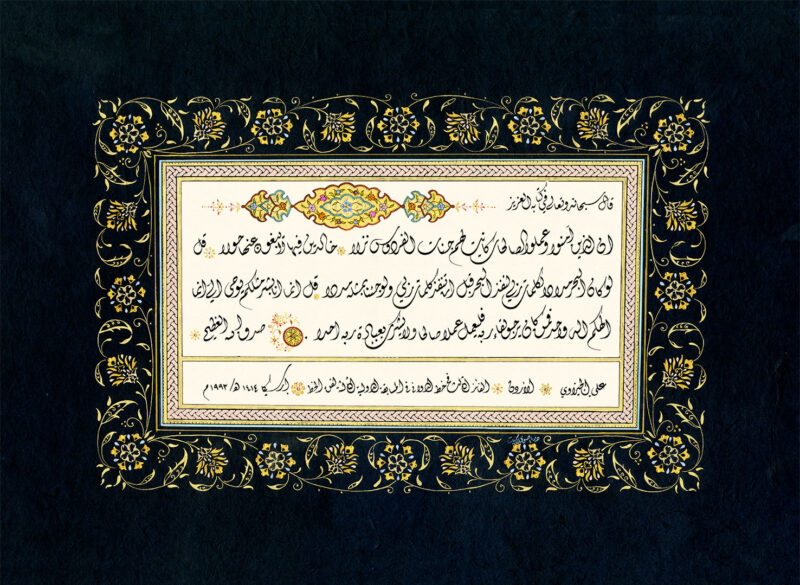 قال سبحانه وتعالى في كتابه العزيز
ان الذين امنوا وعملوا الصالحات كانت لهم جنات الفردوس نزلا خالدين فيها لا يبغون عنها حولا قل
لو كان البحر مدادا لكلمات ربي لنفد البحر قبل ان تنفد كلمات ربي ولو جئنا بمثله مددا قل انما انا بشر مثلكم يوحى الي انما
الهكم اله واحد فمن كان يرجو لقاء ربه فليعمل عملا صالحا ولا يشرك بعبادة ربه احدا صدق الله العظيم
علي الجيزاوي الاردن في خط المسابقة الدولية لفن الخط ارسيكا ١٤١٤ هـ ١٩٩٣ م